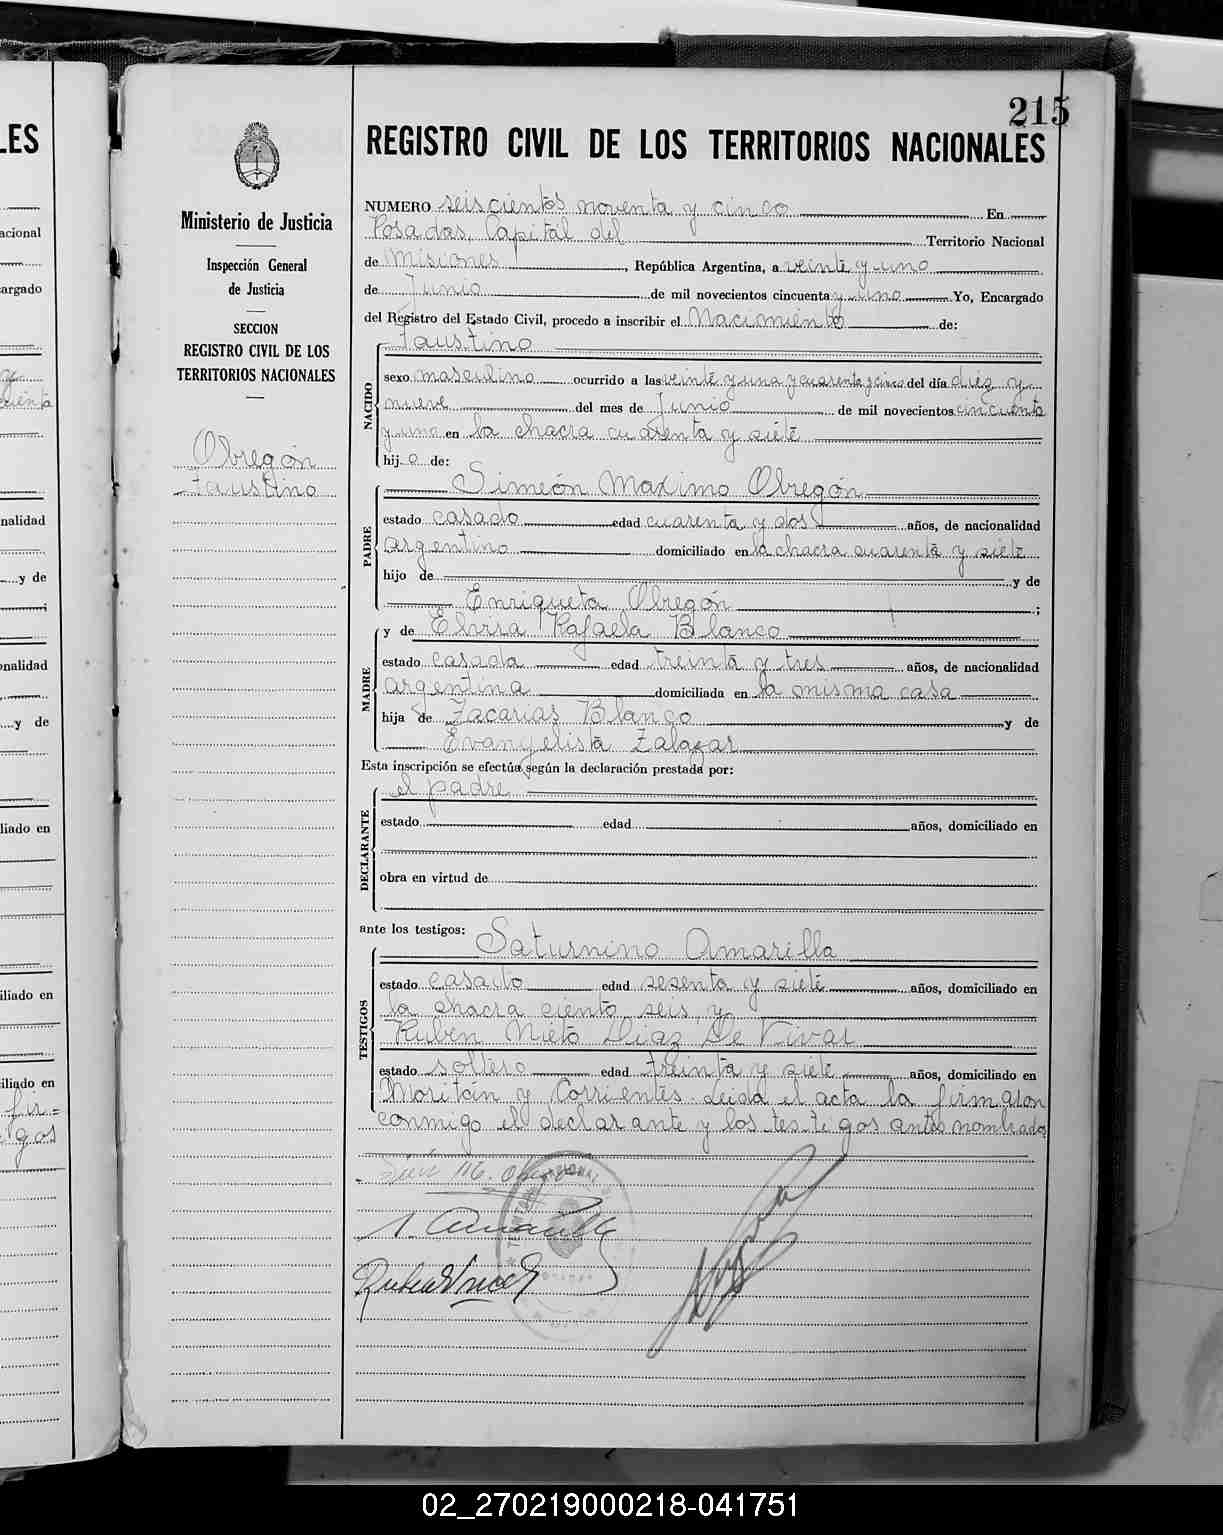 215
REGISTRO CIVIL DE LOS TERRITORIOS NACIONALES
Ministerio de Justicia
Inspección General
de Justicia
SECCION
REGISTRO CIVIL DE LOS
TERRITORIOS NACIONALES
Obregón
Faustino
NUMERO seiscientos noventa y cinco En
Posadas, Capital del Territorio Nacional
de Misiones, República Argentina, a veinte y uno
de Junio de mil novecientos cincuenta y uno Yo, Encargado
del Registro del Estado Civil, procedo a inscribir el Nacimiento de:
Faustino
NACIDO
sexo masculino ocurrido a las veinte y una y cuarenta y cinco del día diez y
nueve del mes de Junio de mil novecientos cincuenta
y uno en la chacra cuarenta y siete
hijo de:
Simeón Maximo Obregón
PADRE
estado casado edad cuarenta y dos años, de nacionalidad
argentino domiciliado en la chacra cuarenta y siete
hijo de y de
Enriqueta Obregón;
y de Elvira Rafaela Blanco
MADRE
estado casada edad treinta y tres años, de nacionalidad
argentina domiciliada en la misma casa
hija de Zacarias Blanco y de
Evangelista Zalazar
Esta inscripción se efectúa según la declaración prestada por:
el padre
DECLARANTE
estado edad años, domiciliado en
obra en virtud de
ante los testigos:
Saturnino Amarilla
TESTIGOS
estado casado edad sesenta y siete años, domiciliado en
la chacra ciento seis y
Ruben Nieto Diaz De Vivar
estado soltero edad treinta y siete años, domiciliado en
Moritán y Corrientes. Leida el acta la firmaron
conmigo el declarante y los testigos antes nombrados
02_270219000218-041751